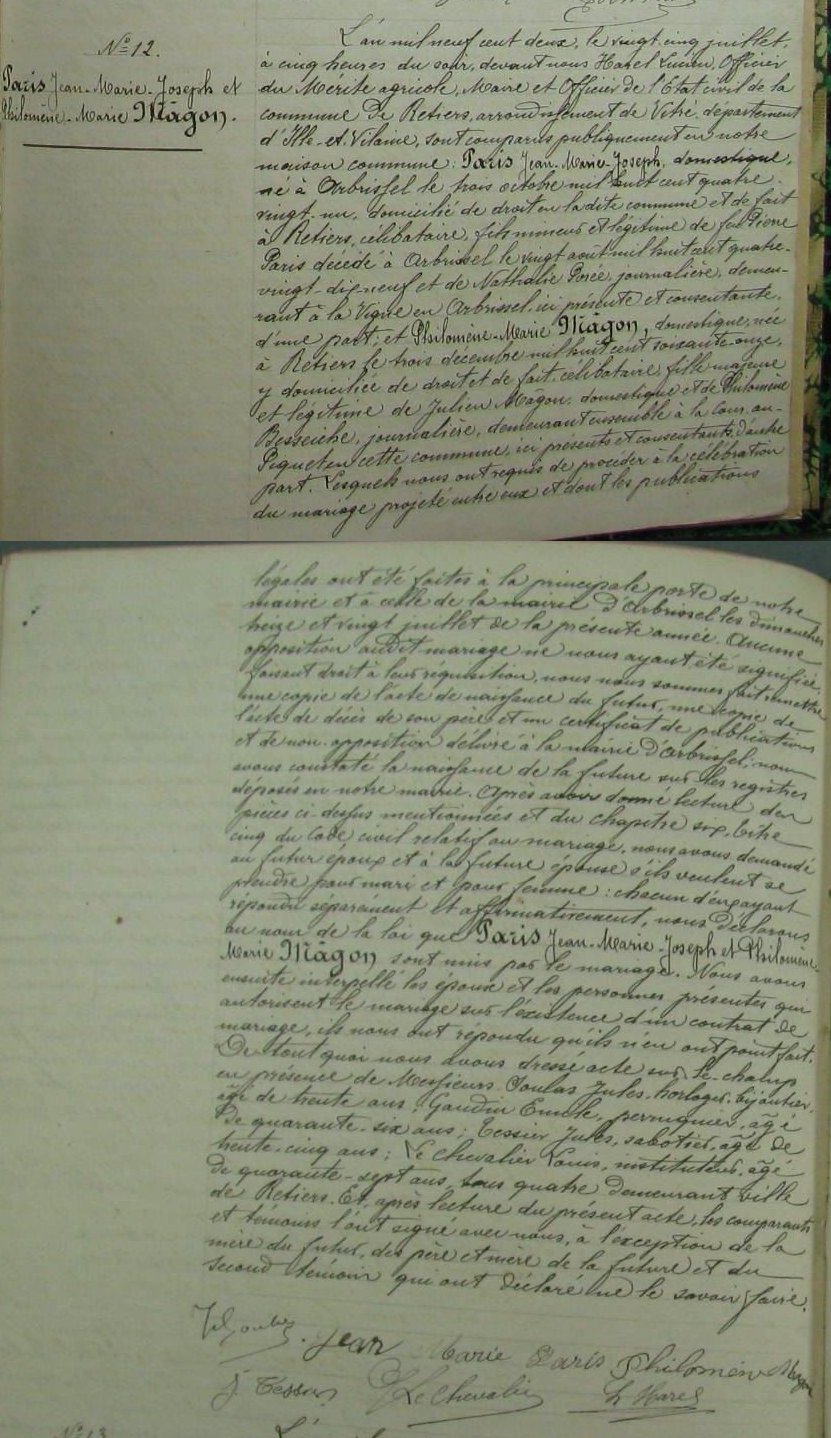 N° 12.
Paris Jean-Marie-Joseph et
Philomène-Marie Mâgon.
L'an mil neuf cent deux, le vingt-cinq juillet,
à cinq heures du soir, devant nous Harel Lucien, Officier
du Mérite agricole, Maire et Officier de l'Etat civil de la
commune De Retiers, arrondissement de Vitré, département
d'Ille-et-Vilaine, sont comparus publiquement en notre
maison commune: Paris Jean-Marie-Joseph, domestique,
né à Arbrissel le trois octobre mil huit cent quatre-
vingt-un, domicilié de droit en la dite commune et de fait
à Retiers, célibataire, fils mineur et légitime de feu Pierre
Paris décédé à Arbrissel le vingt août mil huit cent quatre-
vingt-dix-neuf et de Nathalie Porée, journalière, demeu-
rant à la Vigne en Arbrissel, ici présente et consentante,
d'une part; et Philomène-Marie Mâgon, domestique, née
à Retiers le trois décembre mil huit cent soixante-onze,
y domiciliée de droit et de fait, célibataire, fille majeure
et légitime de Julien Mâgon, domestique et de Philomène
Besseiche, journalière, demeurant ensemble à la Cour-au-
Piquet en cette commune, ici présents et consentants, d'autre
part. Lesquels nous ont requis de procéder à la célébration
du mariage projeté entre eux et dont les publications
légales ont été faites à la principale porte de notre
mairie et à celle de la mairie d'Arbrissel les dimanches
treize et vingt juillet de la présente année. Aucune
opposition audit mariage ne nous ayant été signifiée,
faisant droit à leur réquisition, nous nous sommes fait remettre
une copie de l'acte de naissance du futur, une copie de
l'acte de décès de son père et un certificat de publications
et de non-opposition délivré à la mairie d'Arbrissel; nous
avons constaté la naissance de la future sur les registres
déposés en notre mairie. Après avoir donné lecture des
pièces ci-dessus mentionnées et du chapitre six, titre
cinq du Code civil relatif au mariage, nous avons demandé
au futur époux et à la future épouse s'ils veulent se
prendre pour mari et pour femme: chacun d'eux ayant
répondu séparément et affirmativement, nous déclarons
au nom de la loi que Paris Jean-Marie-Joseph et Philomène-
Marie Mâgon sont unis par le mariage. Nous avons
ensuite interpellé les époux et les personnes présentes qui
autorisent le mariage sur l'existence d'un contrat de
mariage, ils nous ont répondu qu'ils n'en ont point fait.
De tout quoi nous avons dressé acte sur-le-champ
en présence de Messieurs Joulas Jules, horloger-bijoutier,
âgé de trente ans; Gaudin Emile, perruquier, âgé
De quarante-six ans; Tessier Jules, sabotier, âgé de
trente-cinq ans; Le Chevalier Louis, instituteur, âgé
de quarante-sept ans, tous quatre demeurant ville
de Retiers. Et, après lecture du présent acte, les comparants
et témoins l'ont signé avec nous, à l'exception de la
mère du futur, des père et mère de la future et du
second témoin qui ont déclaré ne le savoir faire.
Jean Marie Paris Philomène Magon
J. Tessier Le Chevalier L. Harel
N° 13
L'